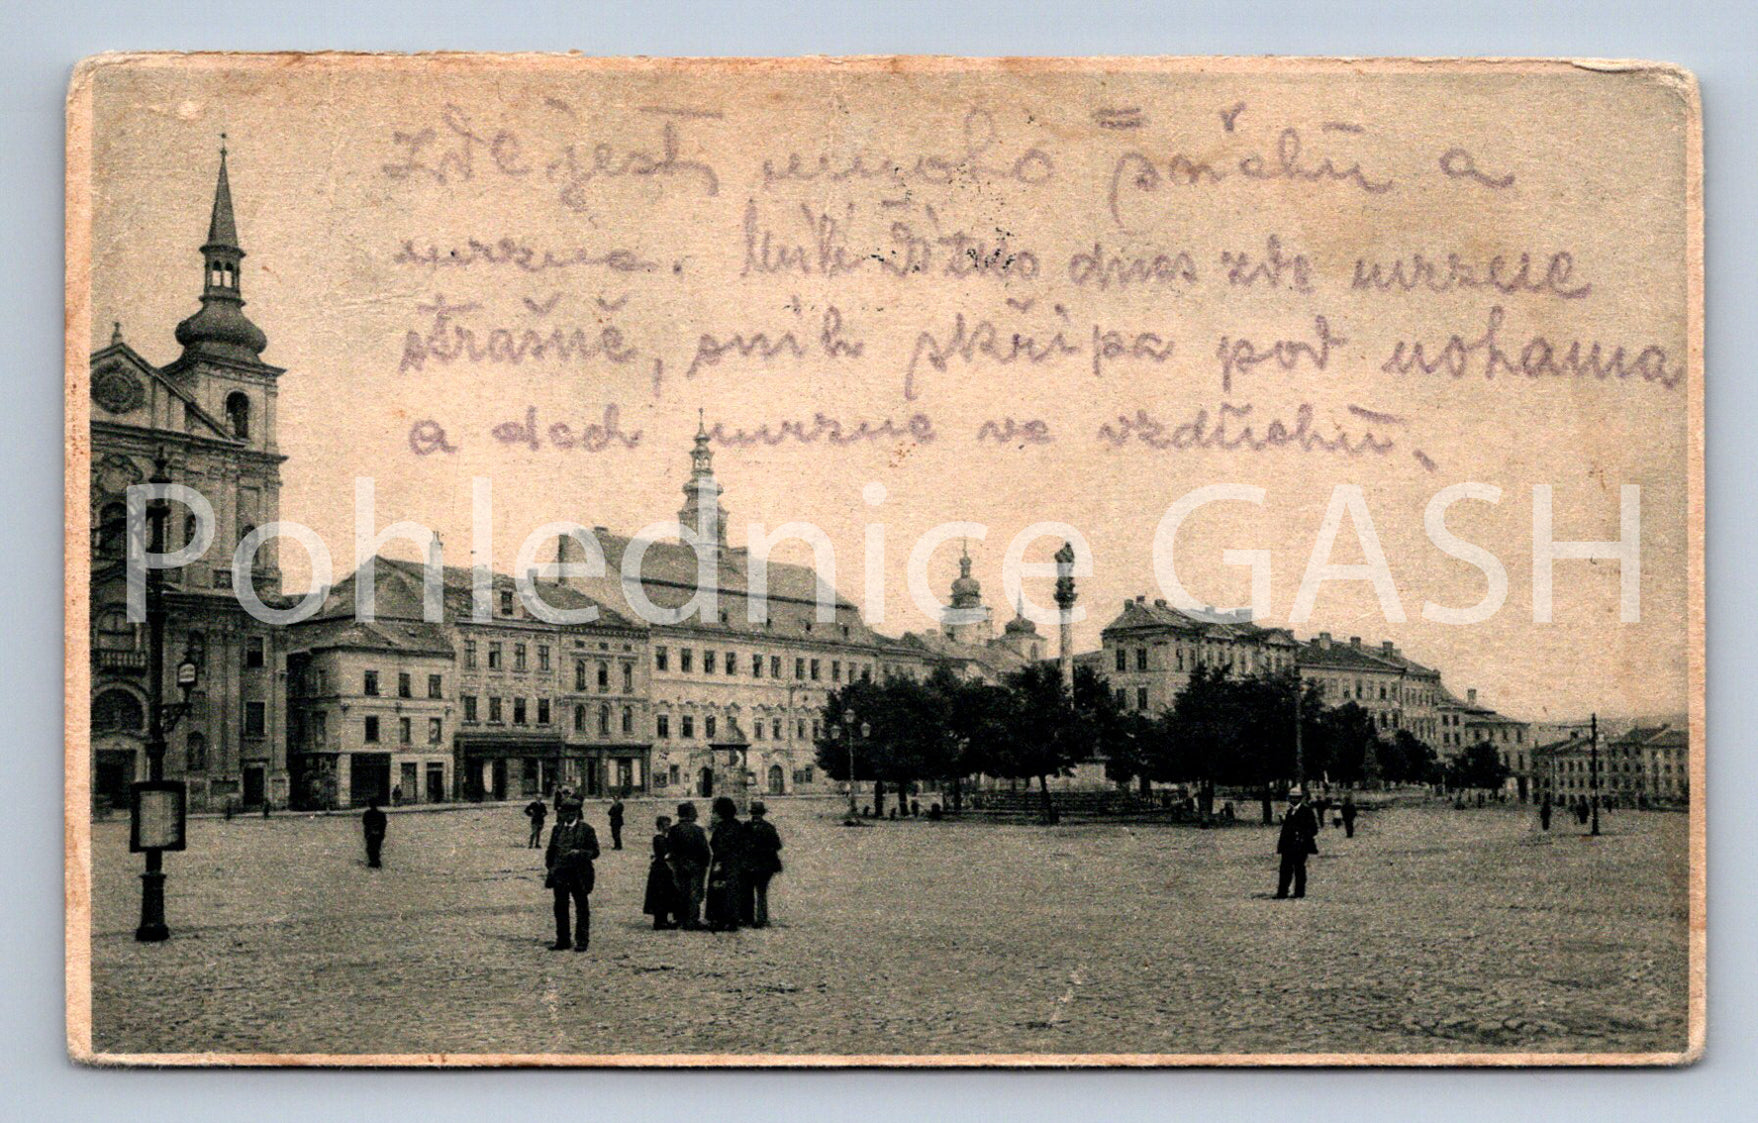 Zde jest mnoho sněhu a
mrzne. dnes zde mrzne
strašně, sníh skřípa pod nohama
a dech mrzne ve vzduchu.
Pohlednice GASH